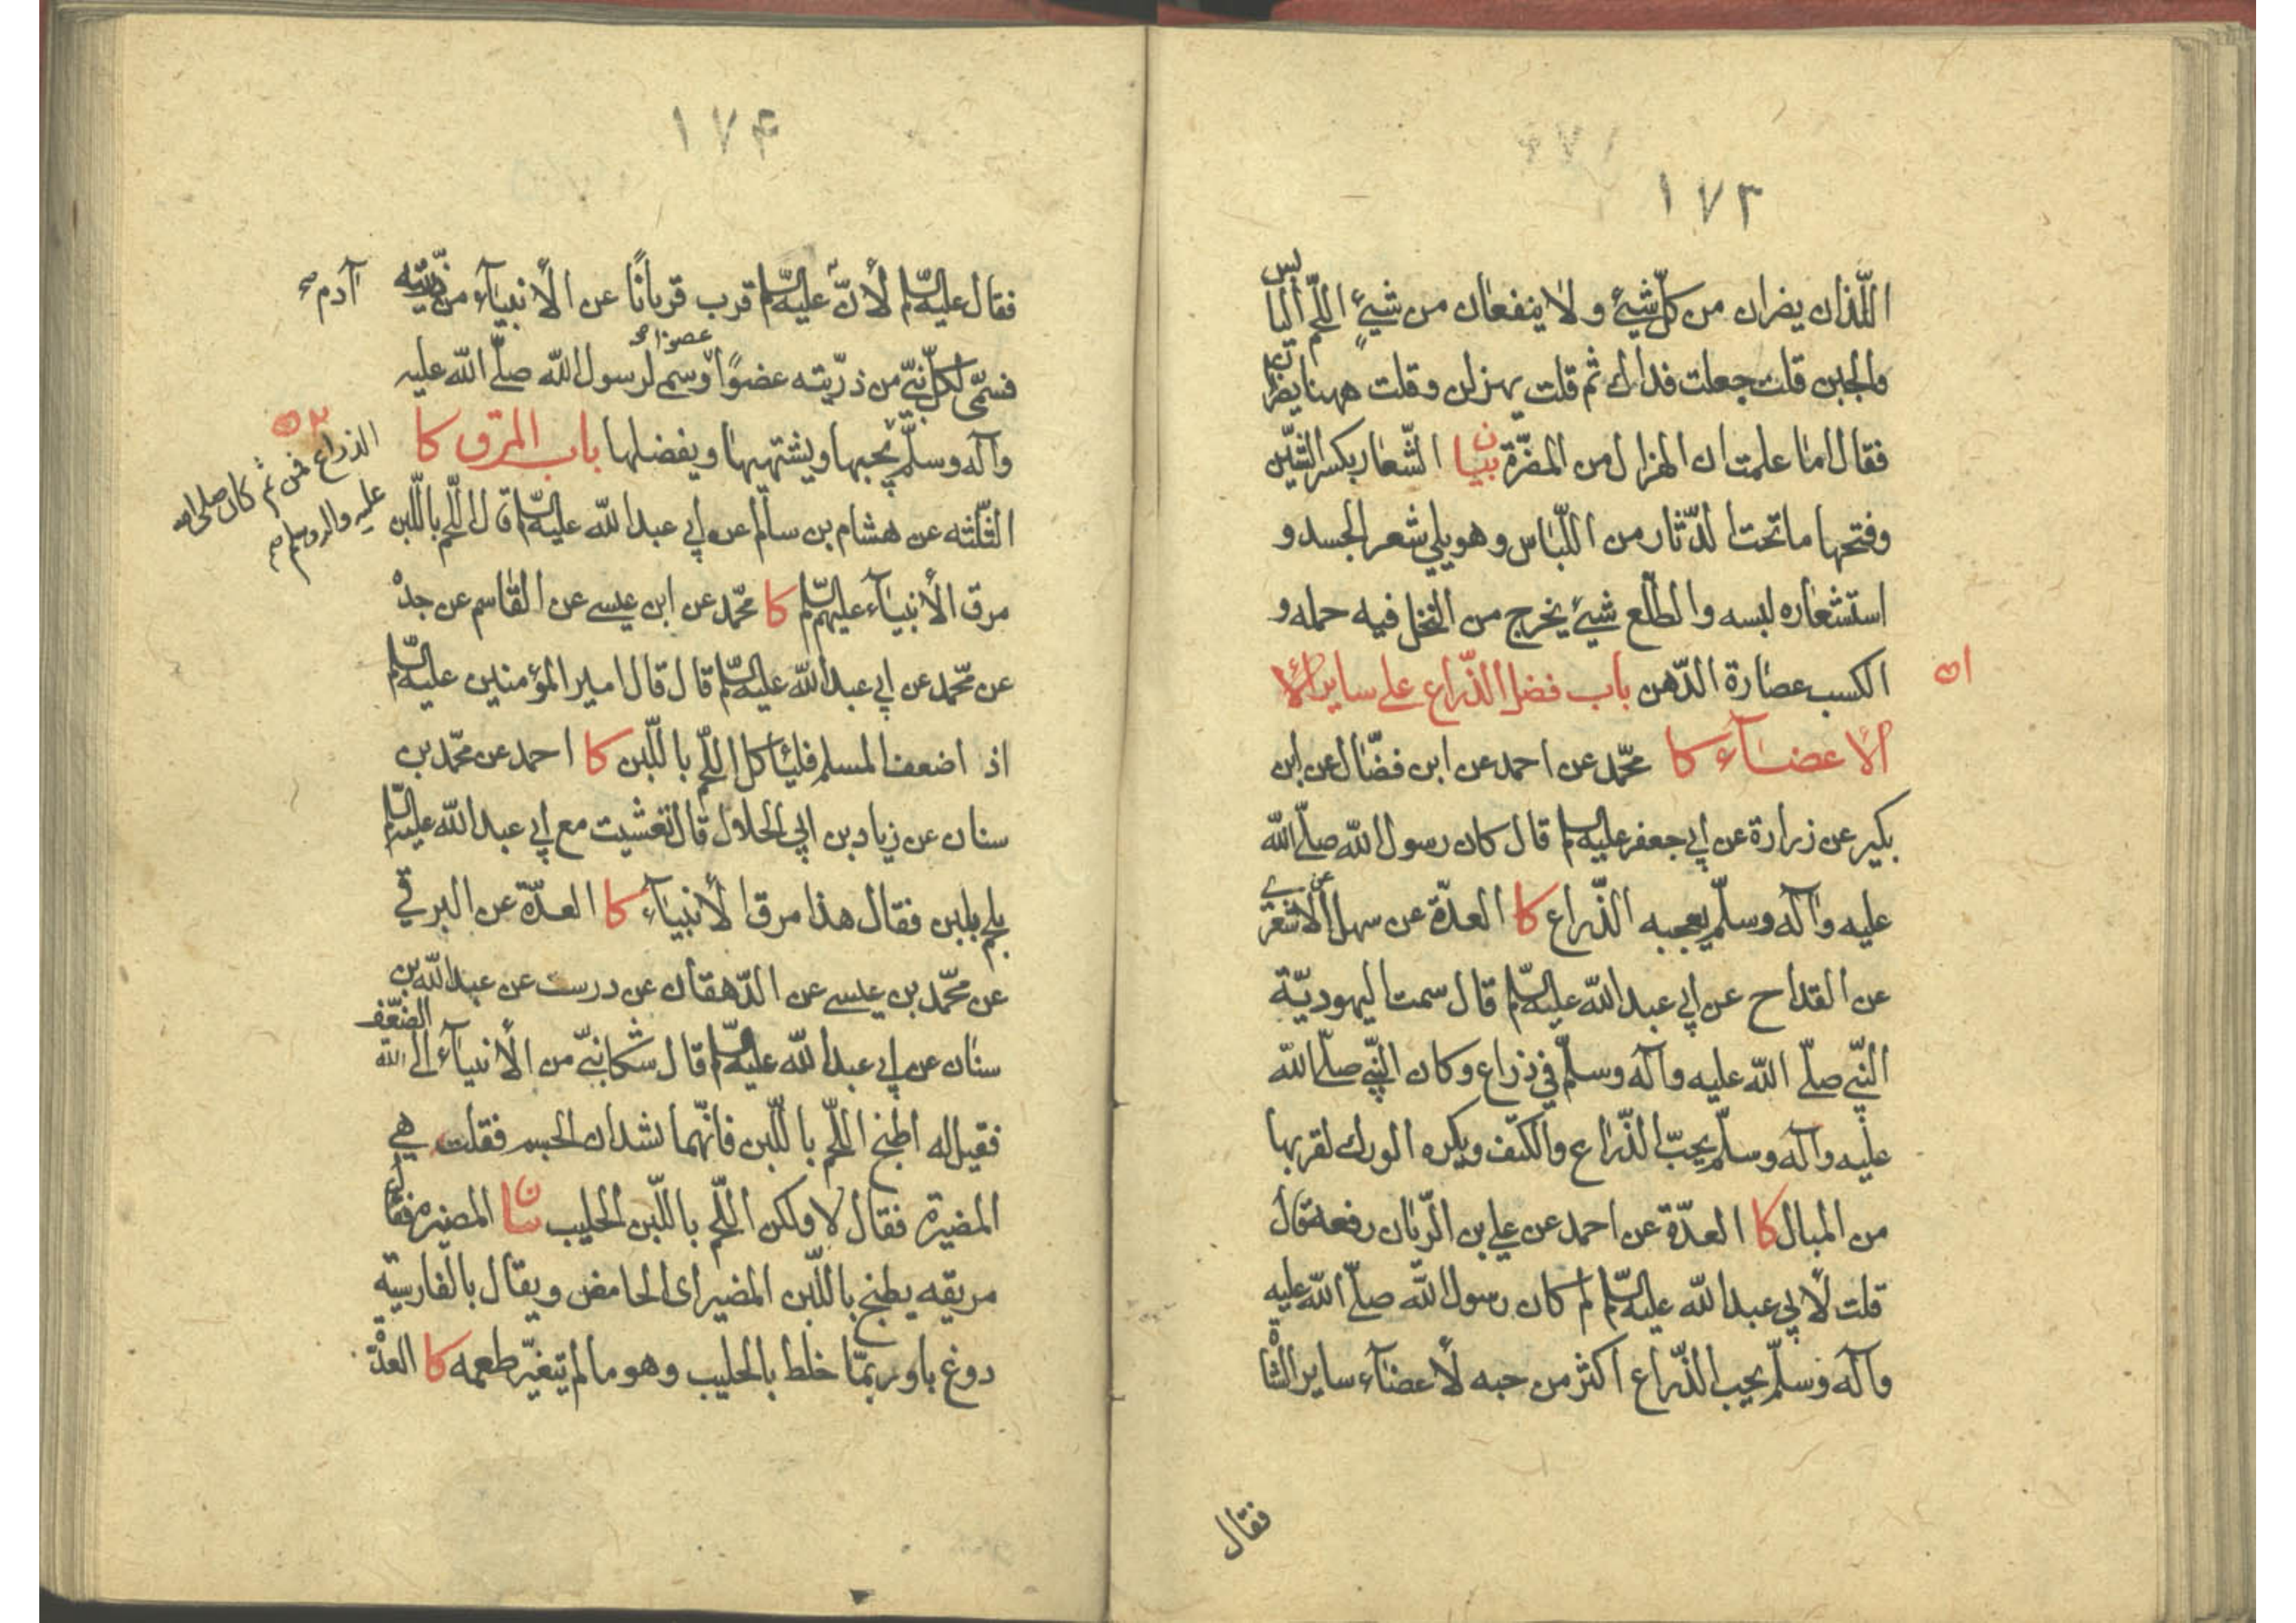 ١٧٣
اللّذان يضران من كلّ شيئ و لا ينفعان من شيئٍ اللّحم اليابس
والجبن قلت جعلت فداك ثم قلت يهزلن وقلت ههنا يضران
فقال اما علمت ان الهزال من المضرّة بيان الشّعار بكسر الشّين
وفتحها ما تحت الدّثار من اللّباس وهو يلي شعر الجسد و
استشعاره لبسه والطلّع شيئ يخرج من النخل فيه حمله و
٥١
الكسب عصارة الدّهن باب فضل الذّراع على ساير الأ
الأعضآء كا محمّد عن احمد عن ابن فضّال عن ابن
بكير عن زرارة عن ابي جعفر عليه السلم قال كان رسول الله صلّى الله
عليه وآله وسلّم يعجبه الذّراع كا العدّة عن سهل عن الاشعري
عن القداح عن ابي عبد الله عليه السّلم قال سمت اليهوديّة
النّبي صلّى الله عليه وآله وسلّم في ذراع وكان النّبي صلّى الله
عليه وآله وسلّم يحبّ الذّراع والكتف ويكره الورك لقربها
من المبال كا العدّة عن احمد عن علي بن الرّيان رفعه قال
قلت لأبي عبد الله عليه السّلم لم كان رسول الله صلّى الله عليه
وآله وسلّم يحب الذّراع اكثر من حبه لأعضآء ساير الشاة
فقال
١٧۴
فقال عليه السّلم لأنّ آدم عليه السّلم قرب قربانًا عن الأنبيآء من ذرّيته
فسمّى لكلّ نبيّ من ذرّيته عضوًا وسم لرسول الله صلّى الله عليه
وآله وسلّم يحبها ويشتهيها ويفضلها باب المرق كا
٥٢
الذراع فمن ثم كان صلى الله
عليه واله وسلم
الثّلثه عن هشام بن سالم عن ابي عبد الله عليه السّلم قال اللّحم باللّبن
مرق الأنبيآء عليهم السّلم كا محمّد عن ابن عيسى عن القاسم عن جدّه
عن محمّد عن ابي عبد الله عليه السّلم قال قال امير المؤمنين عليه السّلم
اذا ضعف المسلم فليأكل اللّحم باللّبن كا احمد عن محمّد بن
سنان عن زياد بن ابي الحلال قال تغشيت مع ابي عبد الله عليه السّلم
بلحم بلبن فقال هذا مرق الأنبيآء كا العدّة عن البرقي
عن محمّد بن عيسى عن الدّهقان عن درست عن عبد الله بن
سنان عن ابي عبد الله عليه السّلم قال شكا نبيّ من الأنبيآء الى الله الضّعف
فقيل له اطبخ اللّحم باللّبن فانّهما يشدان الجسم فقلت هي
المضيرة فقال لا ولكن اللّحم باللّبن الحليب بيان المضيرة فقال
مريقه يطبخ باللّبن المضير اى الحامض ويقال بالفارسيّة
دوغ با وربمّا خلط بالحليب وهو ما لم يتغيّر طعمه كا العدّة